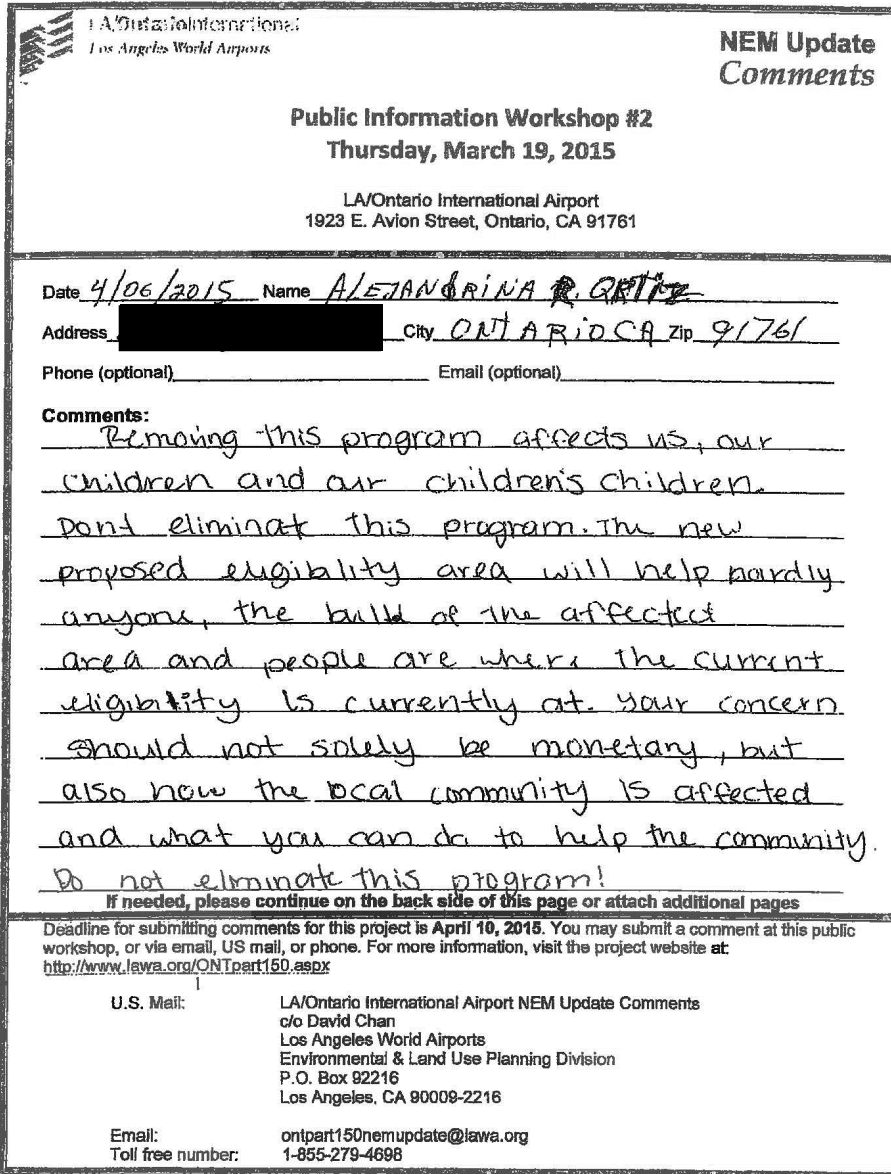 LA/Ontario International
Los Angeles World Airports
NEM Update
Comments
Public Information Workshop #2
Thursday, March 19, 2015
LA/Ontario International Airport
1923 E. Avion Street, Ontario, CA 91761
Date 4/06/2015 Name ALEJANDRINA R. ORTIZ
Address City ONTARIO CA Zip 91761
Phone (optional) Email (optional)
Comments:
Removing this program affects us, our
children and our children's children.
Dont eliminate this program. The new
proposed eligibility area will help hardly
anyone, the bulld of the affected
area and people are where the current
eligibility is currently at. your concern
should not solely be monetary, but
also how the local community is affected
and what you can do to help the community.
Do not elminate this program!
If needed, please continue on the back side of this page or attach additional pages
Deadline for submitting comments for this project is April 10, 2015. You may submit a comment at this public
workshop, or via email, US mail, or phone. For more information, visit the project website at:
http://www.lawa.org/ONTpart150.aspx
U.S. Mail: LA/Ontario International Airport NEM Update Comments
c/o David Chan
Los Angeles World Airports
Environmental & Land Use Planning Division
P.O. Box 92216
Los Angeles, CA 90009-2216
Email: ontpart150nemupdate@lawa.org
Toll free number: 1-855-279-4698